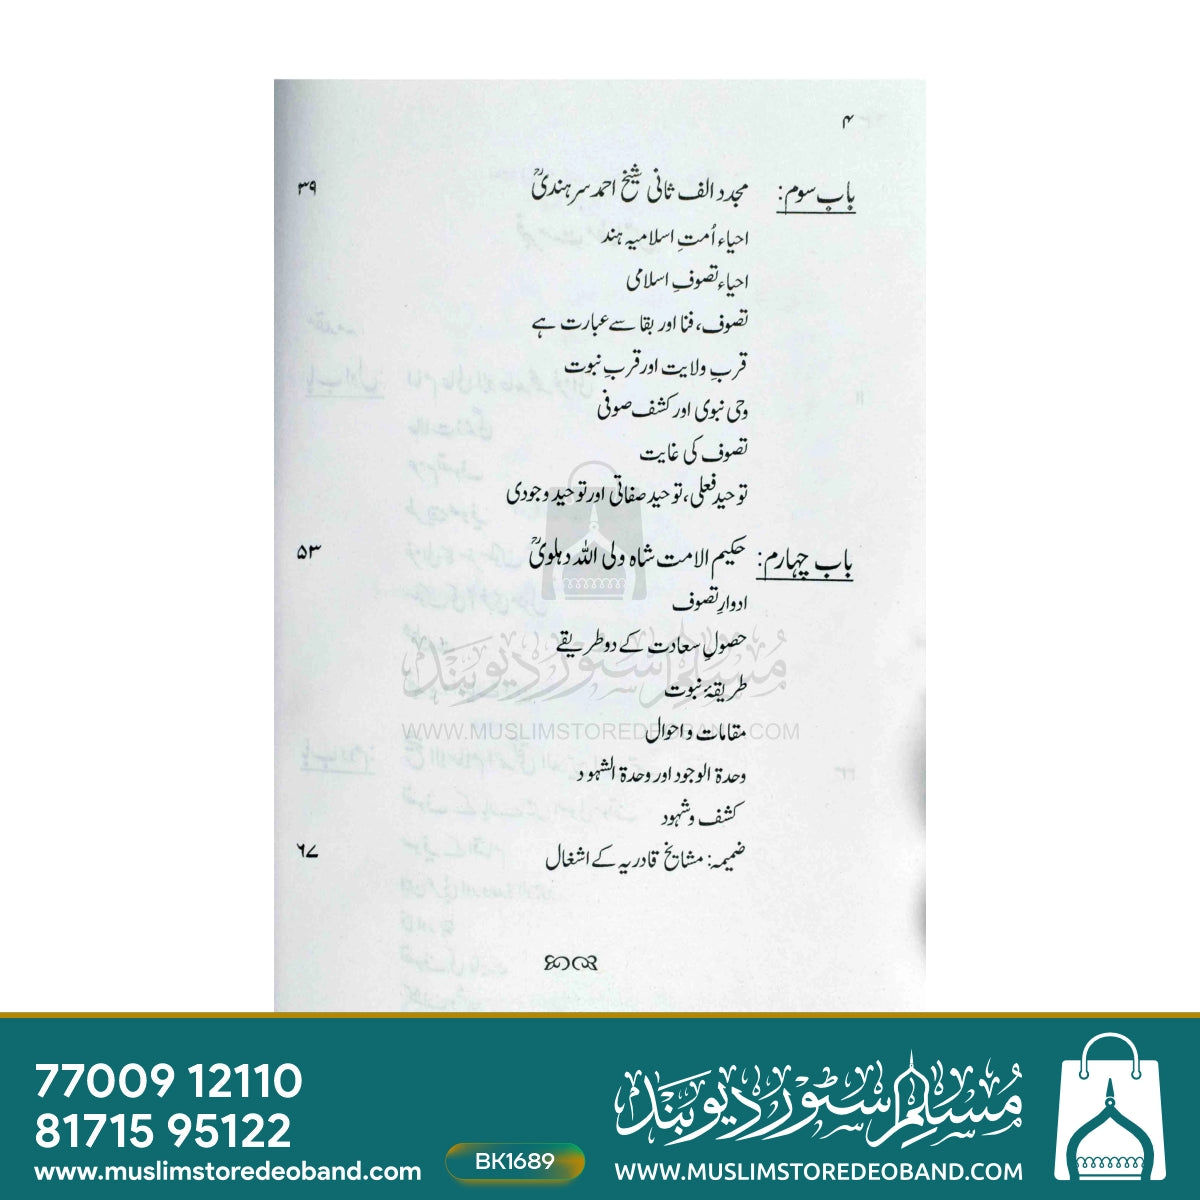 ۴
باب سوم: مجدد الف ثانی شیخ احمد سرہندیؒ ۳۹
احیاء اُمتِ اسلامیہ ہند
احیاء تصوفِ اسلامی
تصوف، فنا اور بقا سے عبارت ہے
قربِ ولایت اور قربِ نبوت
وحی نبوی اور کشف صوفی
تصوف کی غایت
توحید فعلی، توحید صفاتی اور توحید وجودی
باب چہارم: حکیم الامت شاہ ولی اللہ دہلویؒ ۵۳
ادوارِ تصوف
حصولِ سعادت کے دو طریقے
طریقۂ نبوت
مقامات و احوال
وحدۃ الوجود اور وحدۃ الشہود
کشف و شہود
ضمیمہ: مشایخ قادریہ کے اشغال ۶۷
مسلم سٹور دیوبند
WWW.MUSLIMSTOREDEOBAND.COM
77009 12110
81715 95122
www.muslimstoredeoband.com
BK1689
مسلم سٹور دیوبند
WWW.MUSLIMSTOREDEOBAND.COM